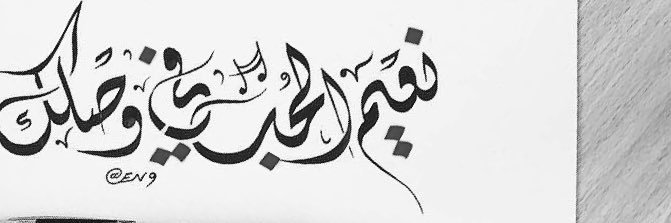 نعيم الحب في وصلك
@ENG